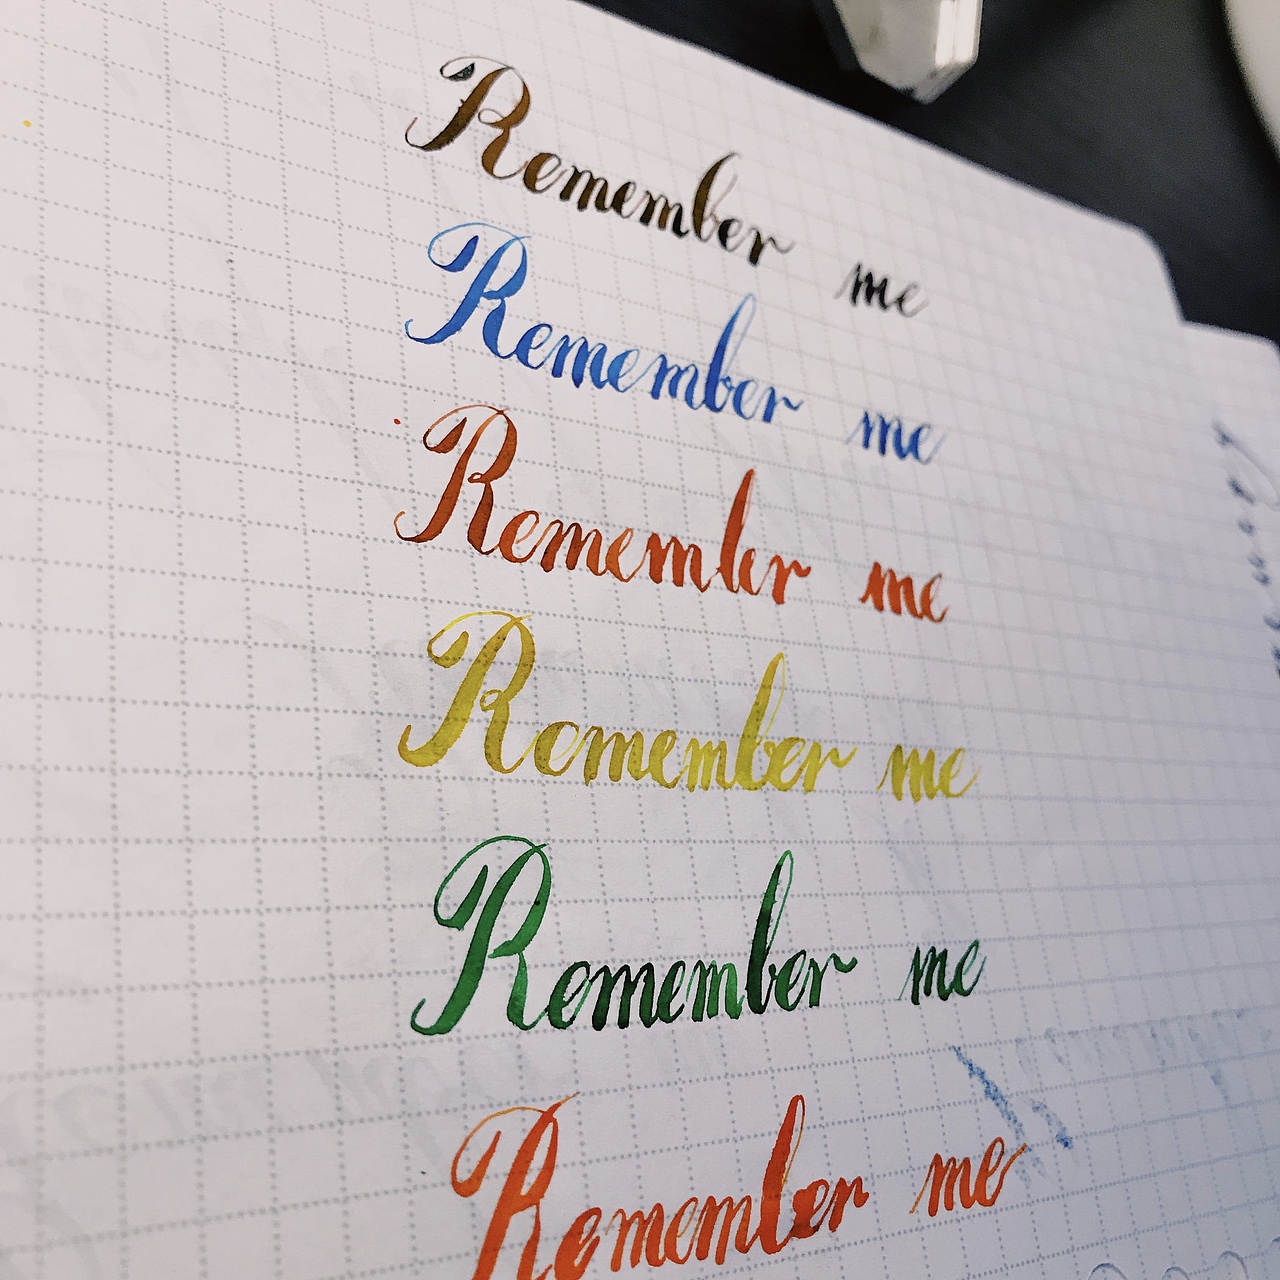 Remember me
Remember me
Remember me
Remember me
Remember me
Remember me